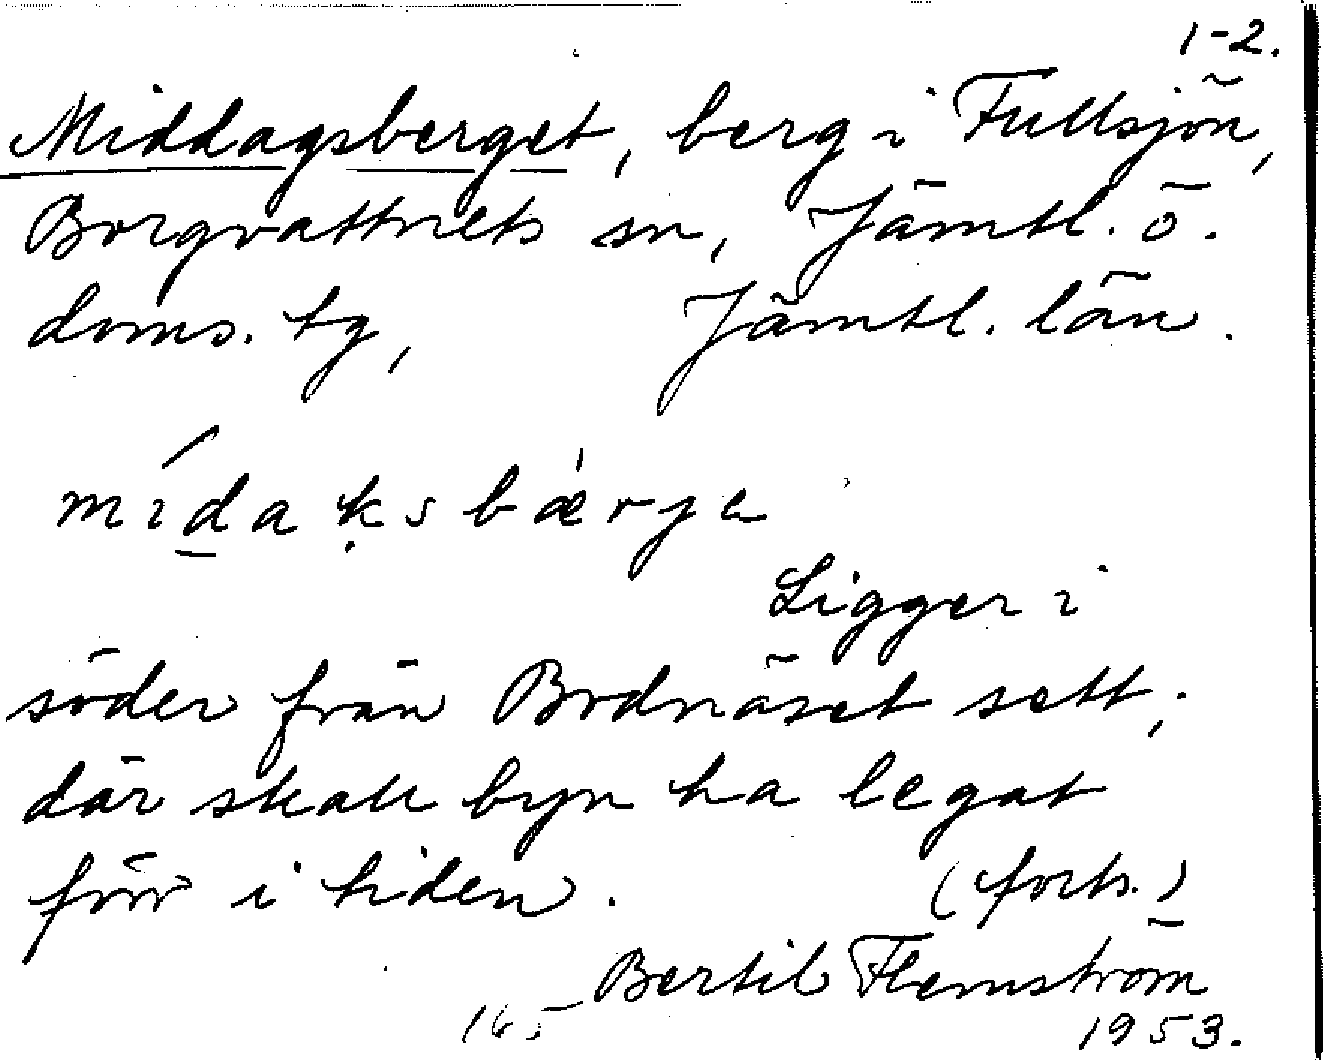 1-2.
Middagsberget, berg i Fullsjön,
Borgvattnets sn, Jämtl. ö.
doms. tg, Jämtl. län.
mídaksbærje
Ligger i
söder från Bodnäset sett;
där skall byn ha legat
förr i tiden. (forts.)
Bertil Flemström
165 1953.